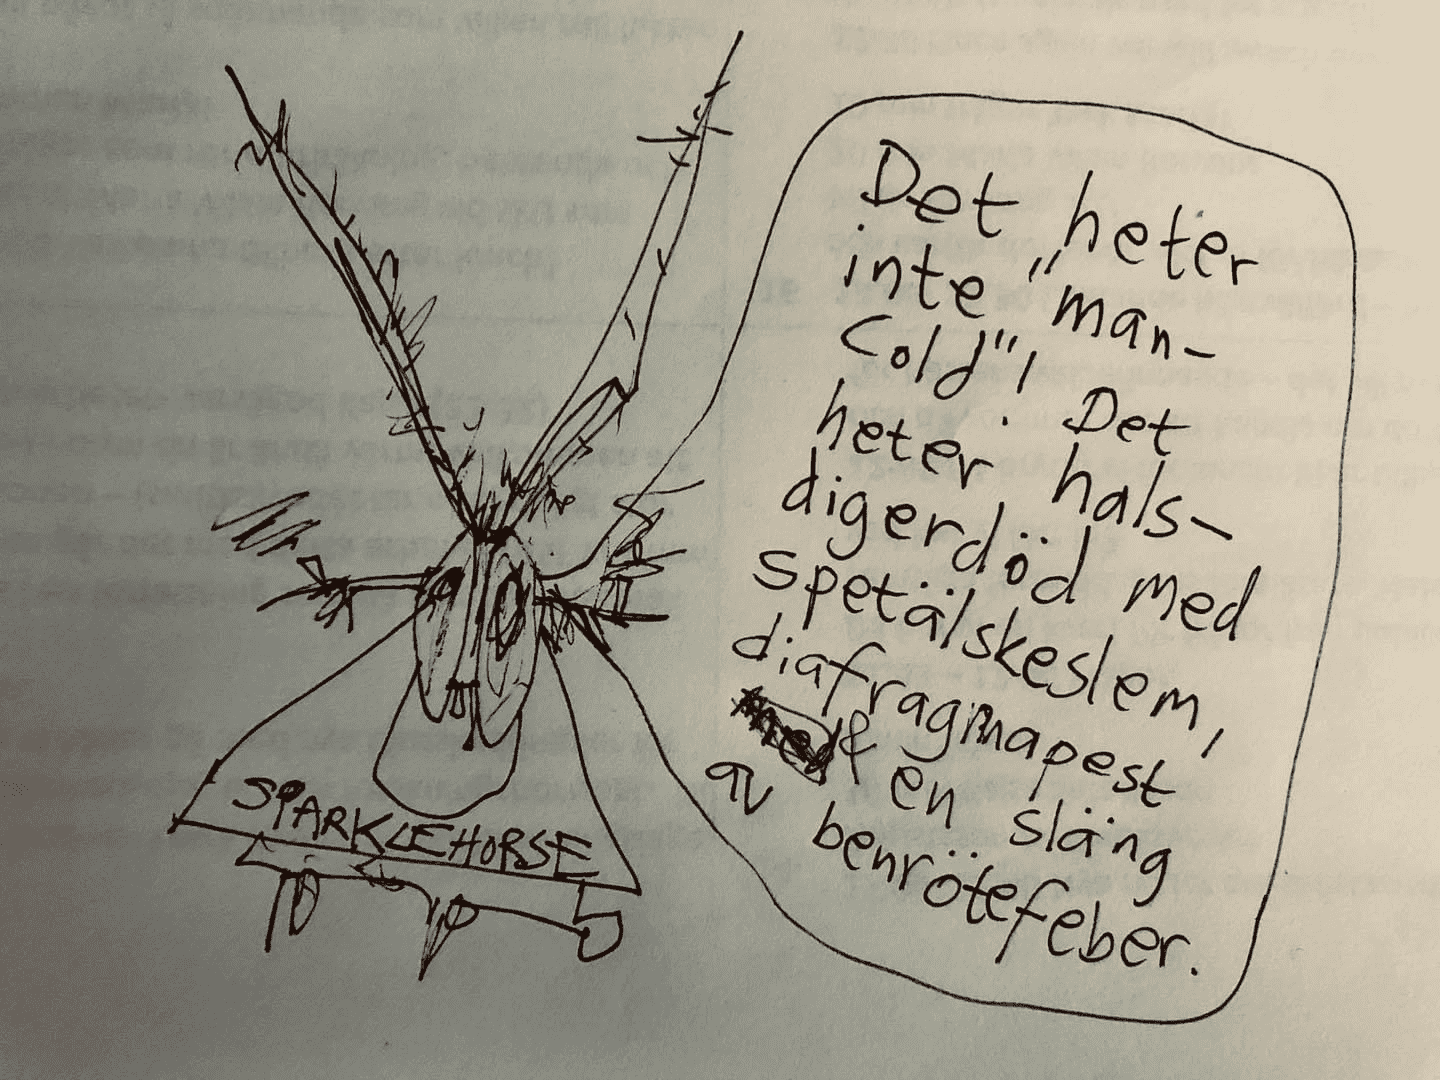 Det heter
inte "man-
cold", Det
heter hals-
digerdöd med
spetälskeslem,
diafragmapest
& en släng
av benrötefeber.
SPARKLEHORSE